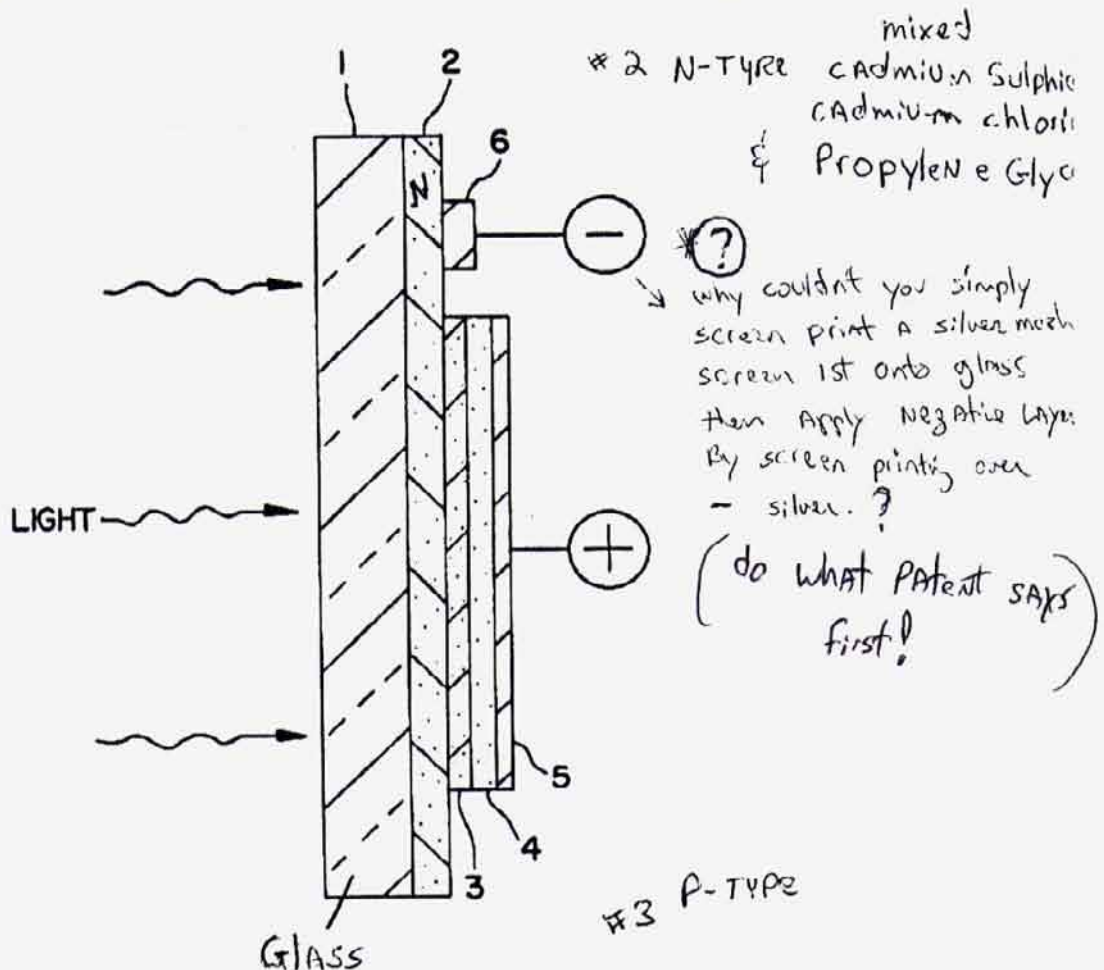 mixed
* 2 N-TYPE CAdmium Sulphic
CAdmium chlori
& PropyleNe Glyc
1
2
6
N
−
* ?
why couldnt you simply
screen print A silver mesh
screen 1st onto glass
then Apply NegAtive LAye
By screen printing over
− silver. ?
(do what PAteNt sAys
first!)
LIGHT
+
5
4
3
#3 P-TYPE
GlAss